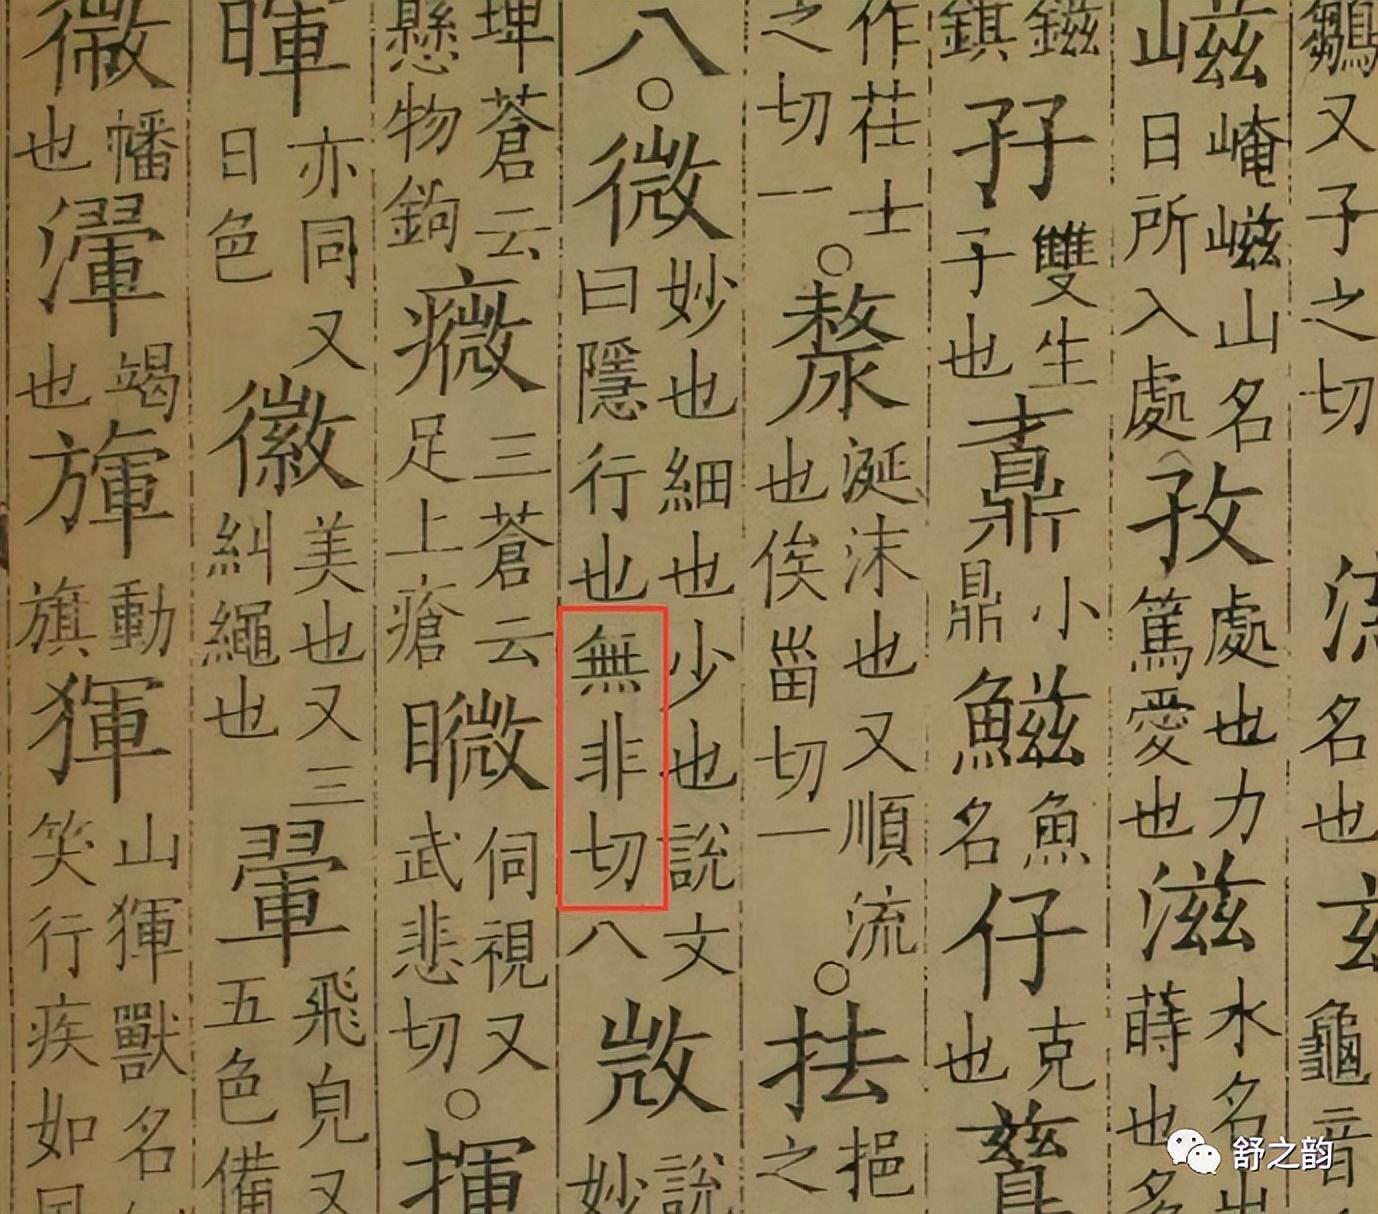 鶵又子之切
名也
龜音
嵫崦嵫山名日所入處孜處也力篤愛也滋水名出蒔也多
鎡錤孖雙生子也鼒小鼎鰦魚名仔克也
作茌士之切一○漦涎沫也又順流也俟甾切一○抾挹之
八○微妙也細也少也說文曰隱行也無非切八𢼸說妙
埤蒼云懸物鉤癓三蒼云足上瘡矀伺視又武悲切○揮
暉亦同又日色徽美也又三糾繩也翬飛皃又五色備
幑幡也瀈竭也㫎動旗𤟤山𤟤獸名笑行疾如
舒之韵